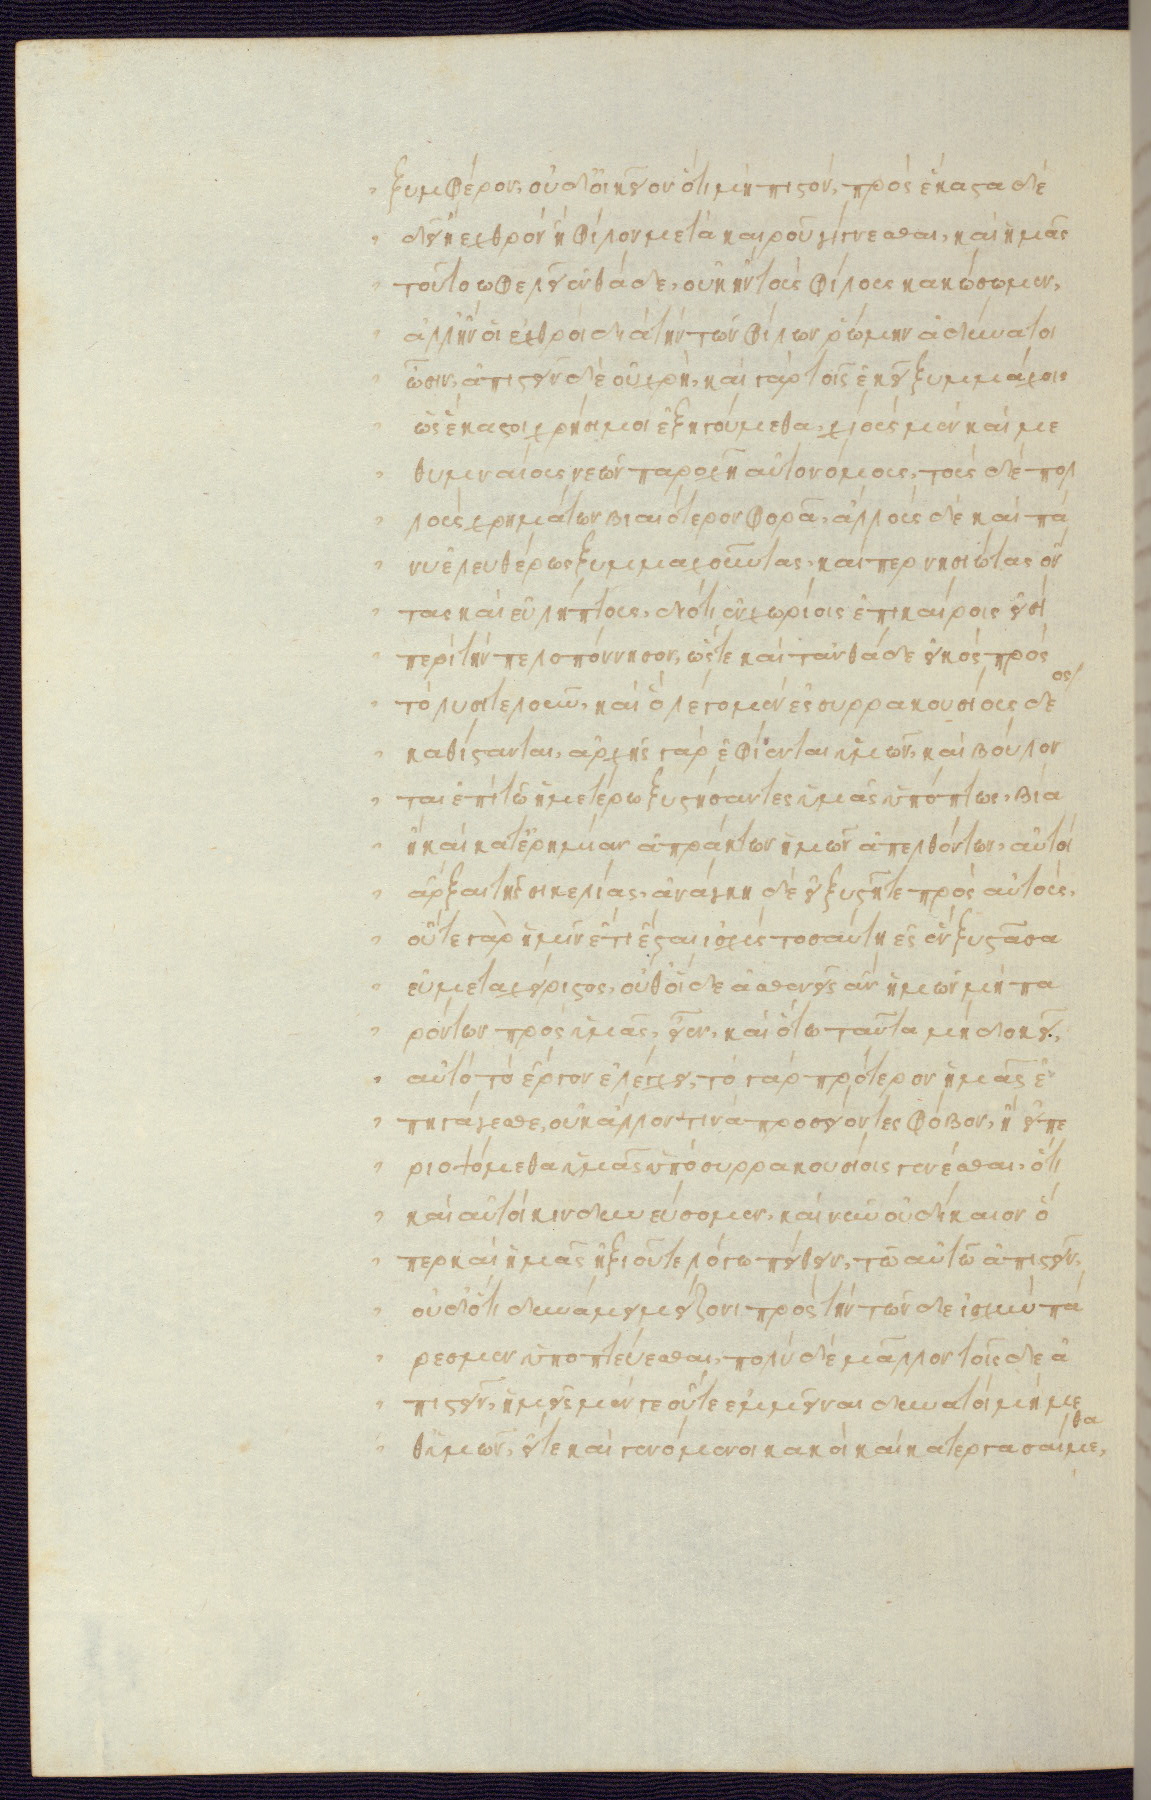 ξυμφέρον, οὐδ' οἰκεῖον ὅτι μὴ πιστόν, πρὸς ἕκαστα δὲ
δεῖ ἢ ἐχθρὸν ἢ φίλον μετὰ καιροῦ γίγνεσθαι, καὶ ἡμᾶς
τοῦτο ὠφελεῖ ἐνθάδε, οὐκ ἢν τοὺς φίλους κακώσωμεν,
ἀλλ' ἢν οἱ ἐχθροὶ διὰ τὴν τῶν φίλων ῥώμην ἀδύνατοι
ὦσιν, ἀπιστεῖν δὲ οὐ χρὴ, καὶ γὰρ τοῖς ἐκεῖ ξυμμάχοις
ὡς ἕκαστοι χρήσιμοι ἐξηγούμεθα, χίους μὲν καὶ με
θυμναίους νεῶν παροχῇ αὐτονόμους, τοὺς δὲ πολ
λοὺς χρημάτων βιαιότερον φορᾷ, ἄλλους δὲ καὶ πά
νυ ἐλευθέρως ξυμμαχοῦντας, καίπερ νησιώτας ὄν
τας καὶ εὐλήπτους, διότι ἐν χωρίοις ἐπικαίροις εἰσὶ
περὶ τὴν πελοπόννησον, ὥστε καὶ τἀνθάδε εἰκὸς πρὸς
τὸ λυσιτελοῦν, καὶ ὃ λέγομεν ἐς συρρακουσίους δέος
καθίστανται, ἀρχῆς γὰρ ἐφίενται ὑμῶν, καὶ βούλον
ται ἐπὶ τῷ ἡμετέρῳ ξυστήσαντες ὑμᾶς ὑπόπτως, βίᾳ
ἢ καὶ κατ' ἐρημίαν ἀπράκτων ἡμῶν ἀπελθόντων, αὐτοὶ
ἄρξαι τῆς σικελίας, ἀνάγκη δὲ εἰ ξυστῆτε πρὸς αὐτοὺς,
οὔτε γὰρ ἡμῖν ἔτι ἔσται ἰσχὺς τοσαύτη ἐς ἓν ξυστᾶσα
εὐμεταχείριστος, οὔθ' οἵδε ἀσθενεῖς ἂν ἡμῶν μὴ πα
ρόντων πρὸς ὑμᾶς, εἶεν, καὶ ὅτῳ ταῦτα μὴ δοκεῖ,
αὐτὸ τὸ ἔργον ἐλέγχει, τὸ γὰρ πρότερον ἡμᾶς ἐ
πηγάγεσθε, οὐκ ἄλλον τινὰ προσείοντες φόβον, ἢ εἰ πε
ριοψόμεθα ὑμᾶς ὑπὸ συρρακουσίοις γενέσθαι, ὅτι
καὶ αὐτοὶ κινδυνεύσομεν, καὶ νῦν οὐ δίκαιον ᾧ
περ καὶ ἡμᾶς ἠξιοῦτε λόγῳ πείθειν, τῷ αὐτῷ ἀπιστεῖν,
οὐδ' ὅτι δυνάμει μείζονι πρὸς τὴν τῶνδε ἰσχὺν πά
ρεσμεν ὑποπτεύεσθαι, πολὺ δὲ μᾶλλον τοῖσδε ἀ
πιστεῖν, ἡμεῖς μέν γε οὔτε ἐμμεῖναι δυνατοὶ μὴ με
θ' ὑμῶν, εἴτε καὶ γενόμενοι κακοὶ καὶ κατεργασαίμεθα,